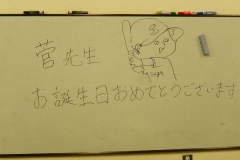 菅先生
お誕生日おめでとうございます。